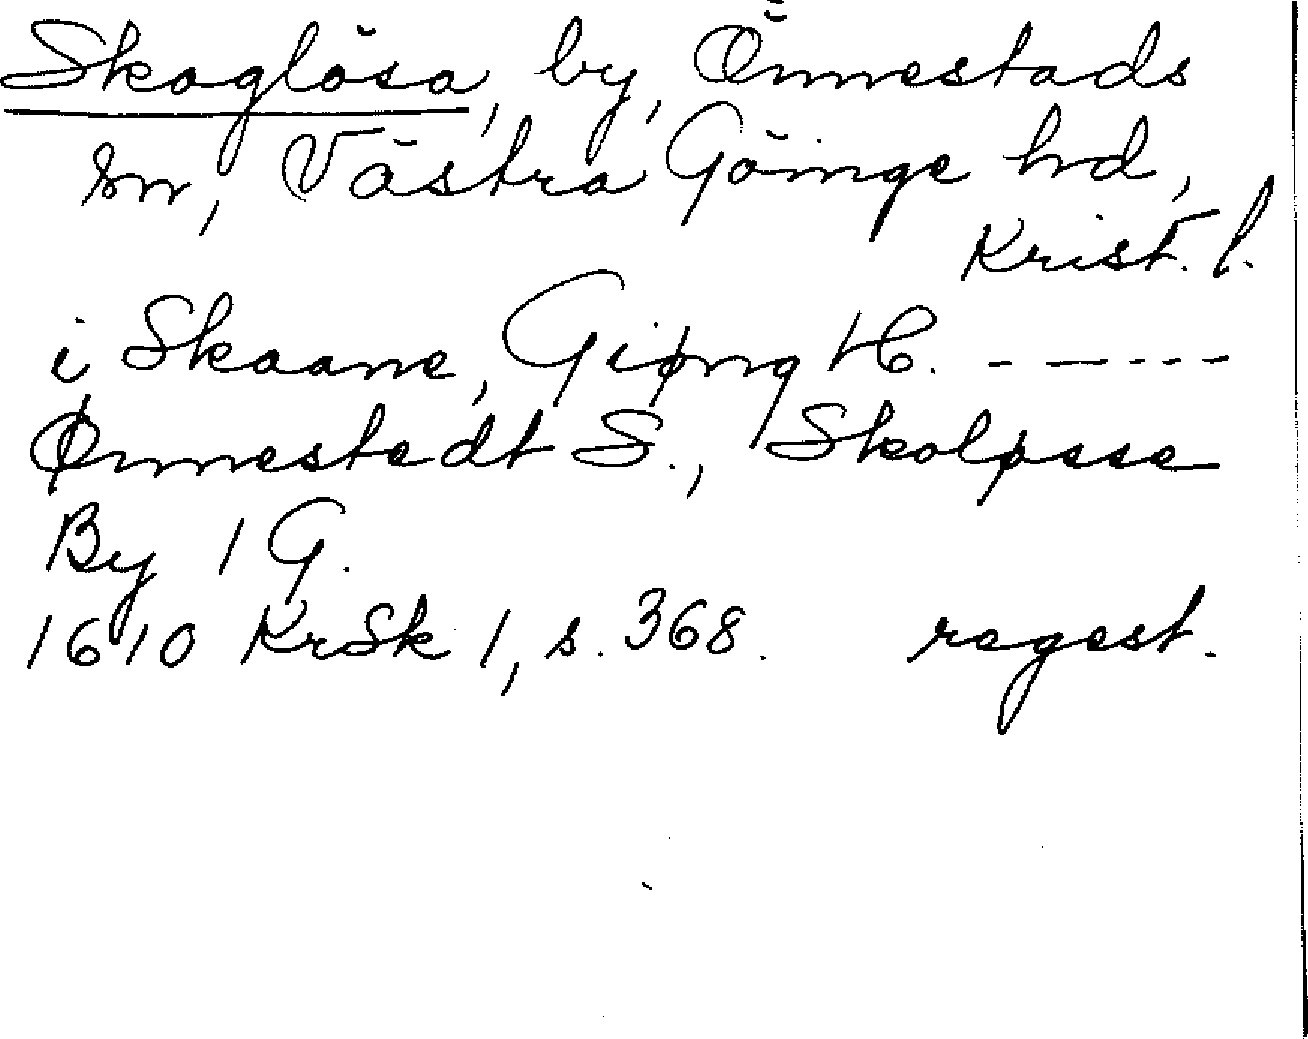 Skoglösa, by, Önnestads
sn, Västra Göinge hd,
Krist. l.
i Skaane, Giøng H. - - - - - -
Ønnestedt S., Skoløsse
By 1 G.
1610 KrSk 1, s. 368. regest.